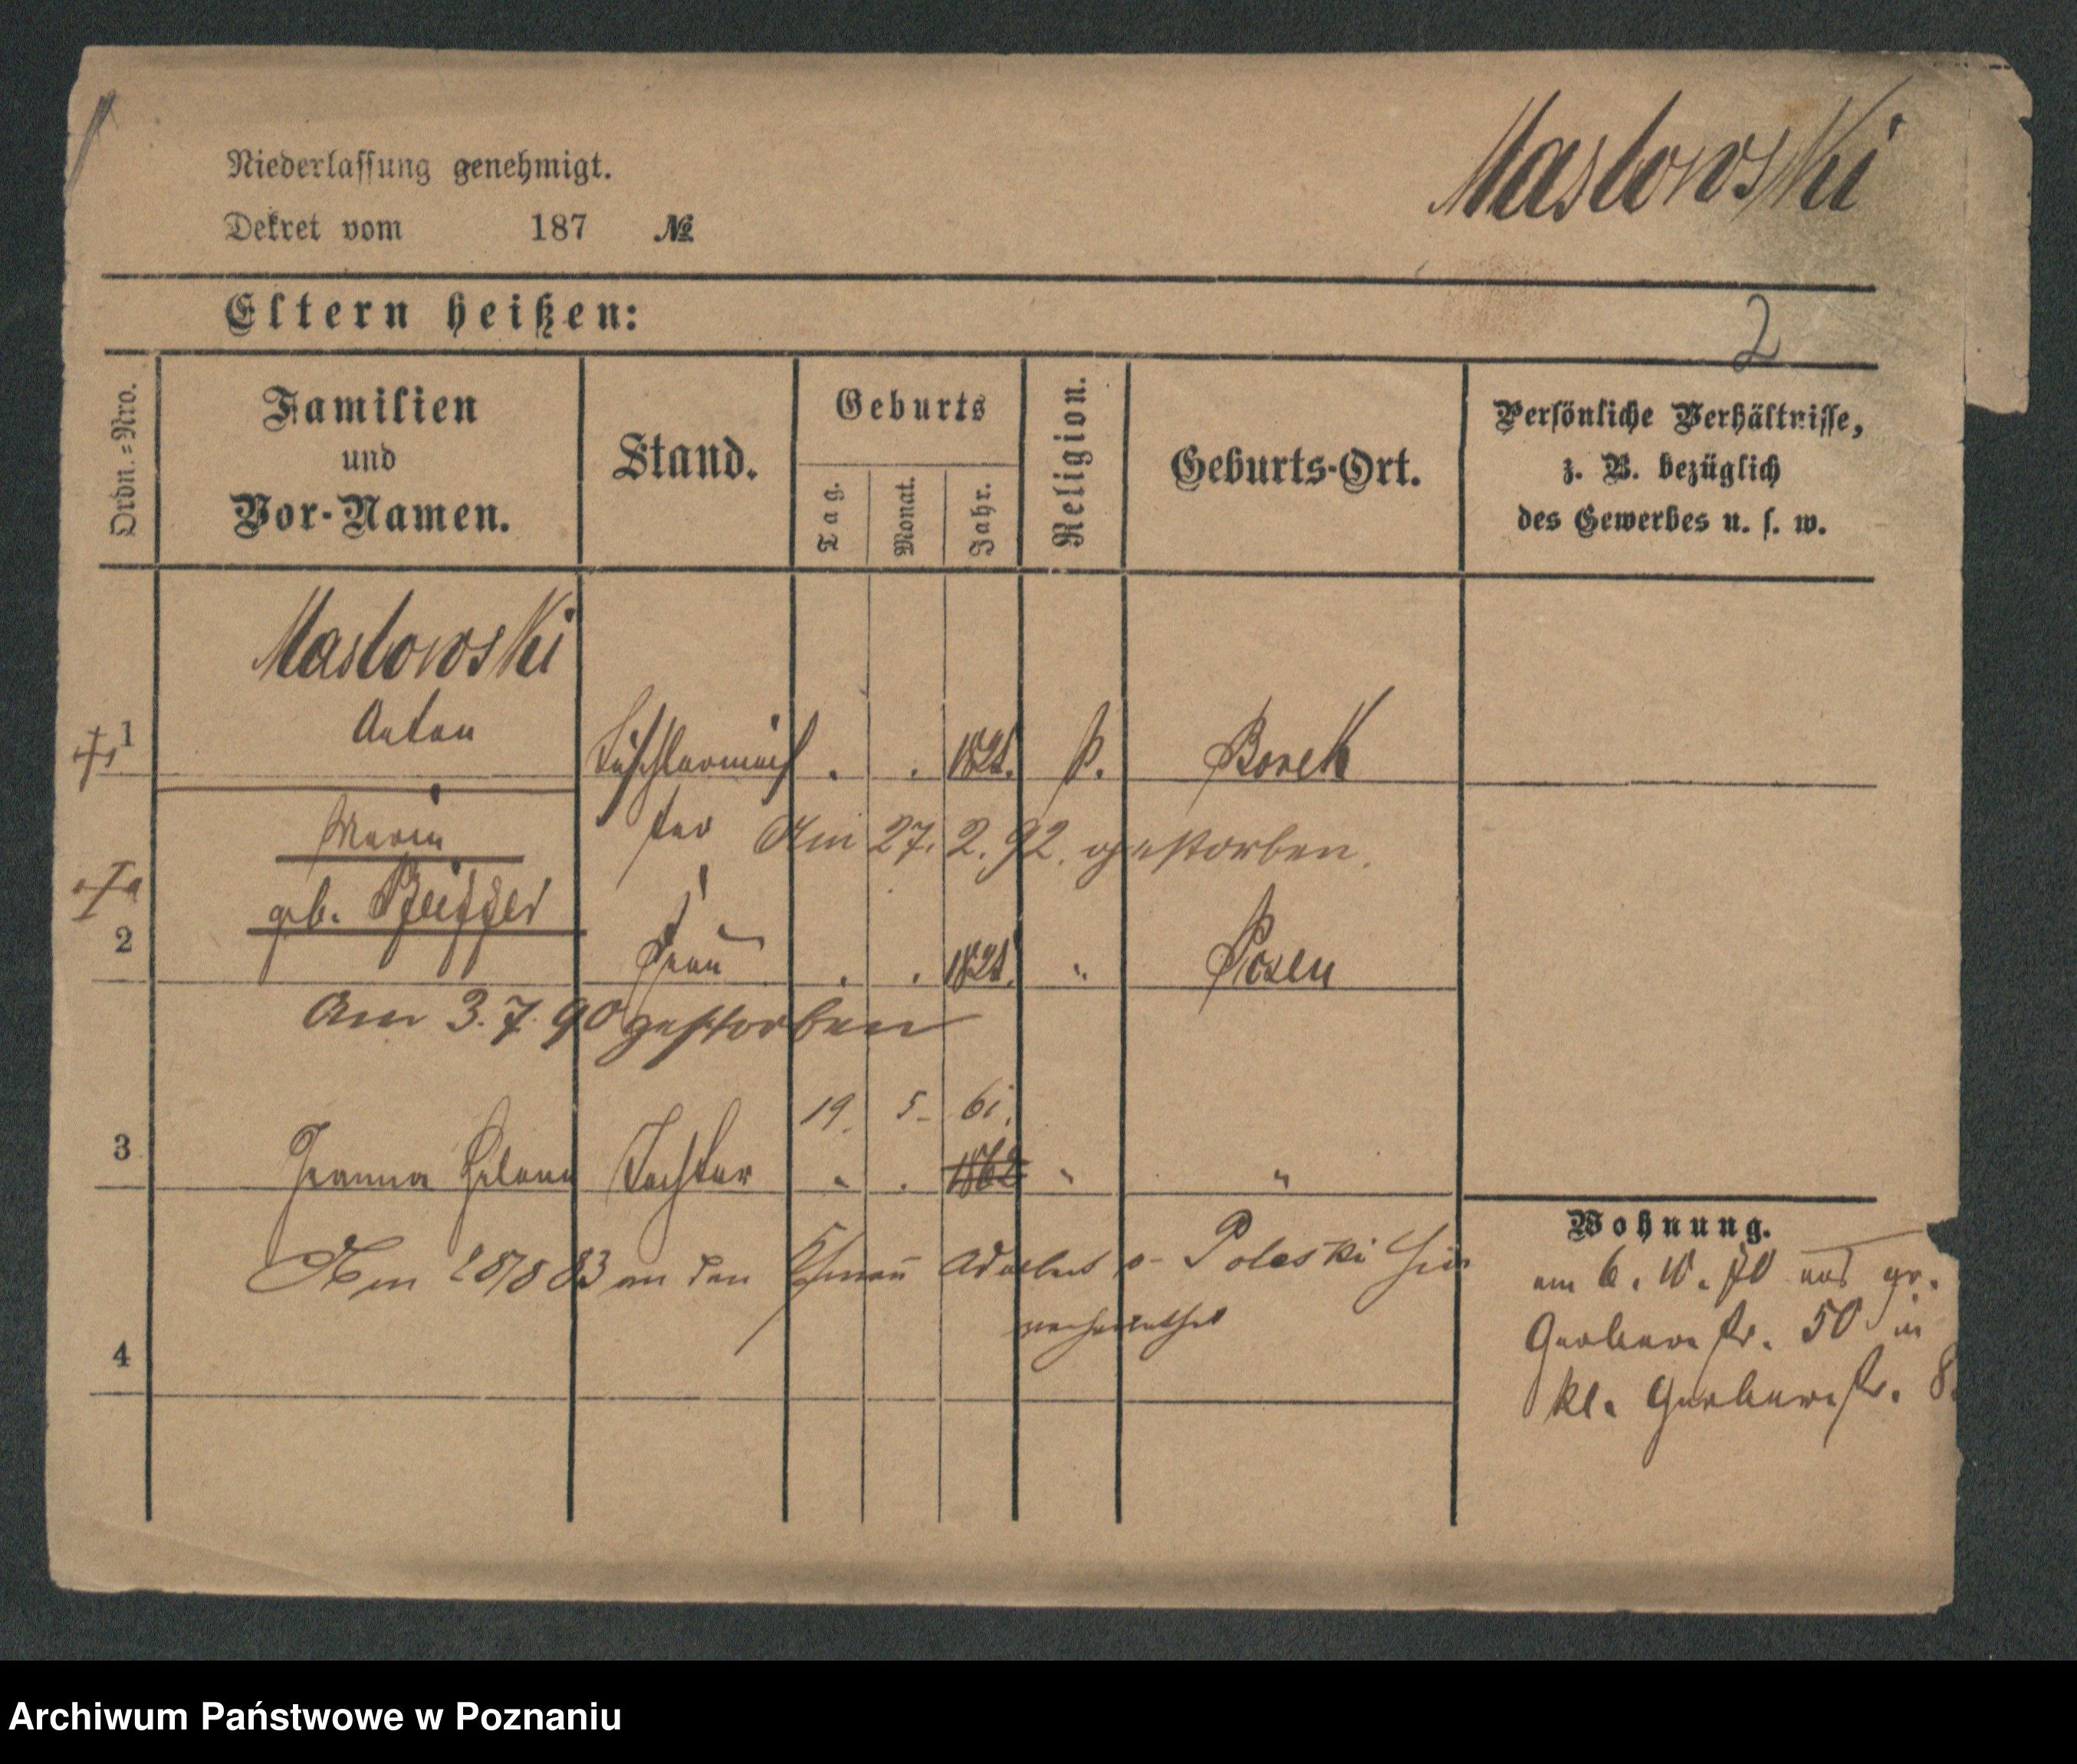 Maslowski
Niederlassung genehmigt.
Dekret vom 187 №
Eltern heißen:
2
Ordn.-Nro.
Familien
und
Vor-Namen.
Stand.
Geburts
Tag.
Monat.
Jahr.
Religion.
Geburts-Ort.
Persönliche Verhältnisse,
z. B. bezüglich
des Gewerbes u. s. w.
Maslowski
1 Anton Tischlermeis . . k. Borek
ter Am 27. 2. 92. gestorben.
Maria
geb.
2 Frau . . " Posen
Am 3. 7. 90 gestorben
19. 5. 61.
3 Helena Tochter " . 1862 " "
Wohnung.
Am 83 an den v. Poleski hier
verheirathet
4
am 6. 10. 70 aus gr.
Gerberstr. 50 in
kl. Gerberstr. 8.
Archiwum Państwowe w Poznaniu